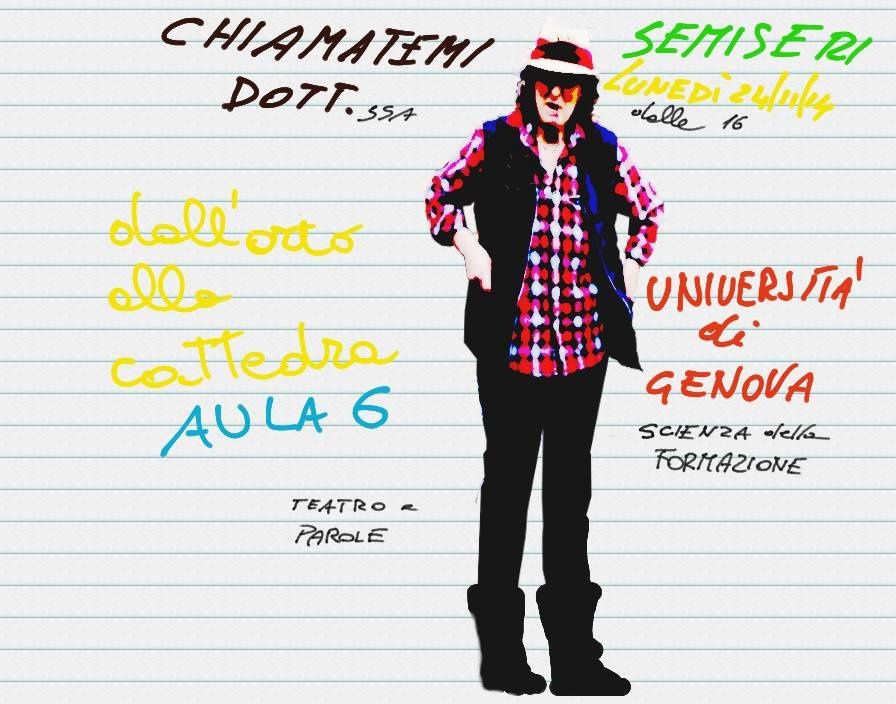 CHIAMATEMI
DOTT.SSA
SEMISERI
LUNEDì 24/11/14
dalle 16
dall'orto
alla
cattedra
AULA 6
UNIVERSITA'
di
GENOVA
SCIENZA della
FORMAZIONE
TEATRO e
PAROLE